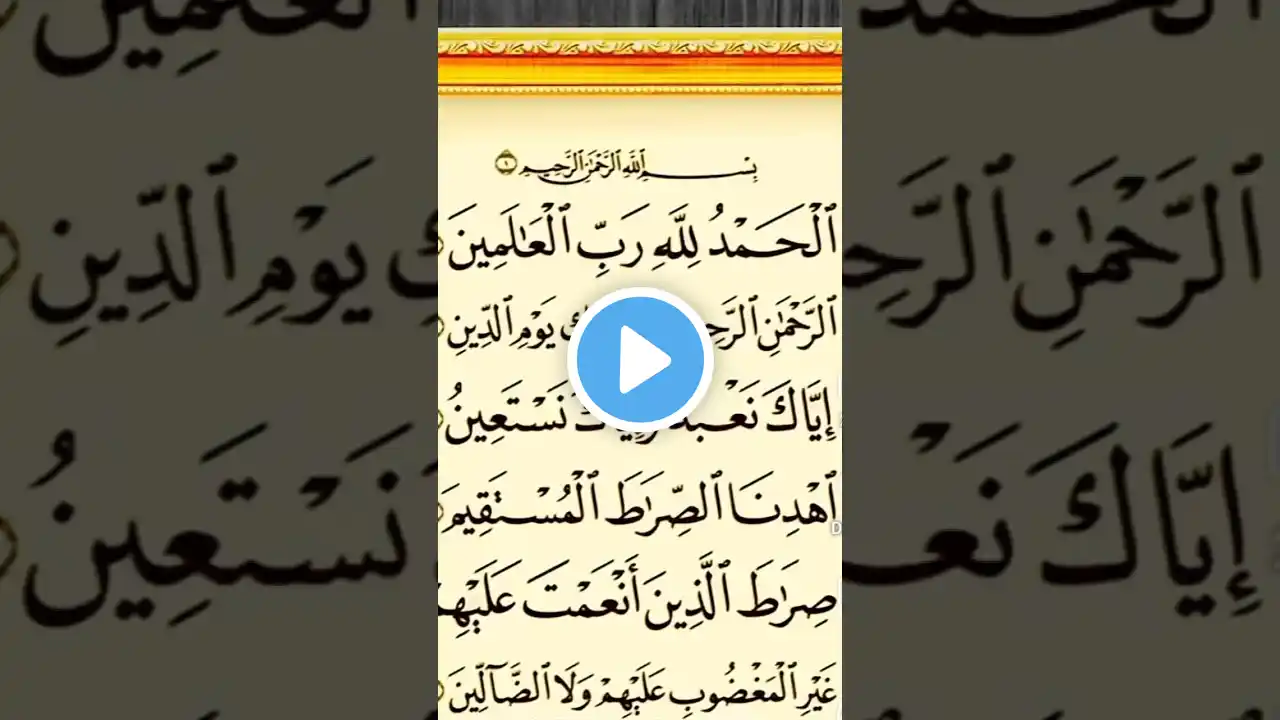 بِسْمِ ٱللَّهِ ٱلرَّحْمَٰنِ ٱلرَّحِيمِ ١
ٱلْحَمْدُ لِلَّهِ رَبِّ ٱلْعَٰلَمِينَ
ٱلرَّحْمَٰنِ يَوْمِ ٱلدِّينِ
إِيَّاكَ نَسْتَعِينُ
ٱهْدِنَا ٱلصِّرَٰطَ ٱلْمُسْتَقِيمَ
صِرَٰطَ ٱلَّذِينَ أَنْعَمْتَ
غَيْرِ ٱلْمَغْضُوبِ عَلَيْهِمْ وَلَا ٱلضَّآلِّينَ